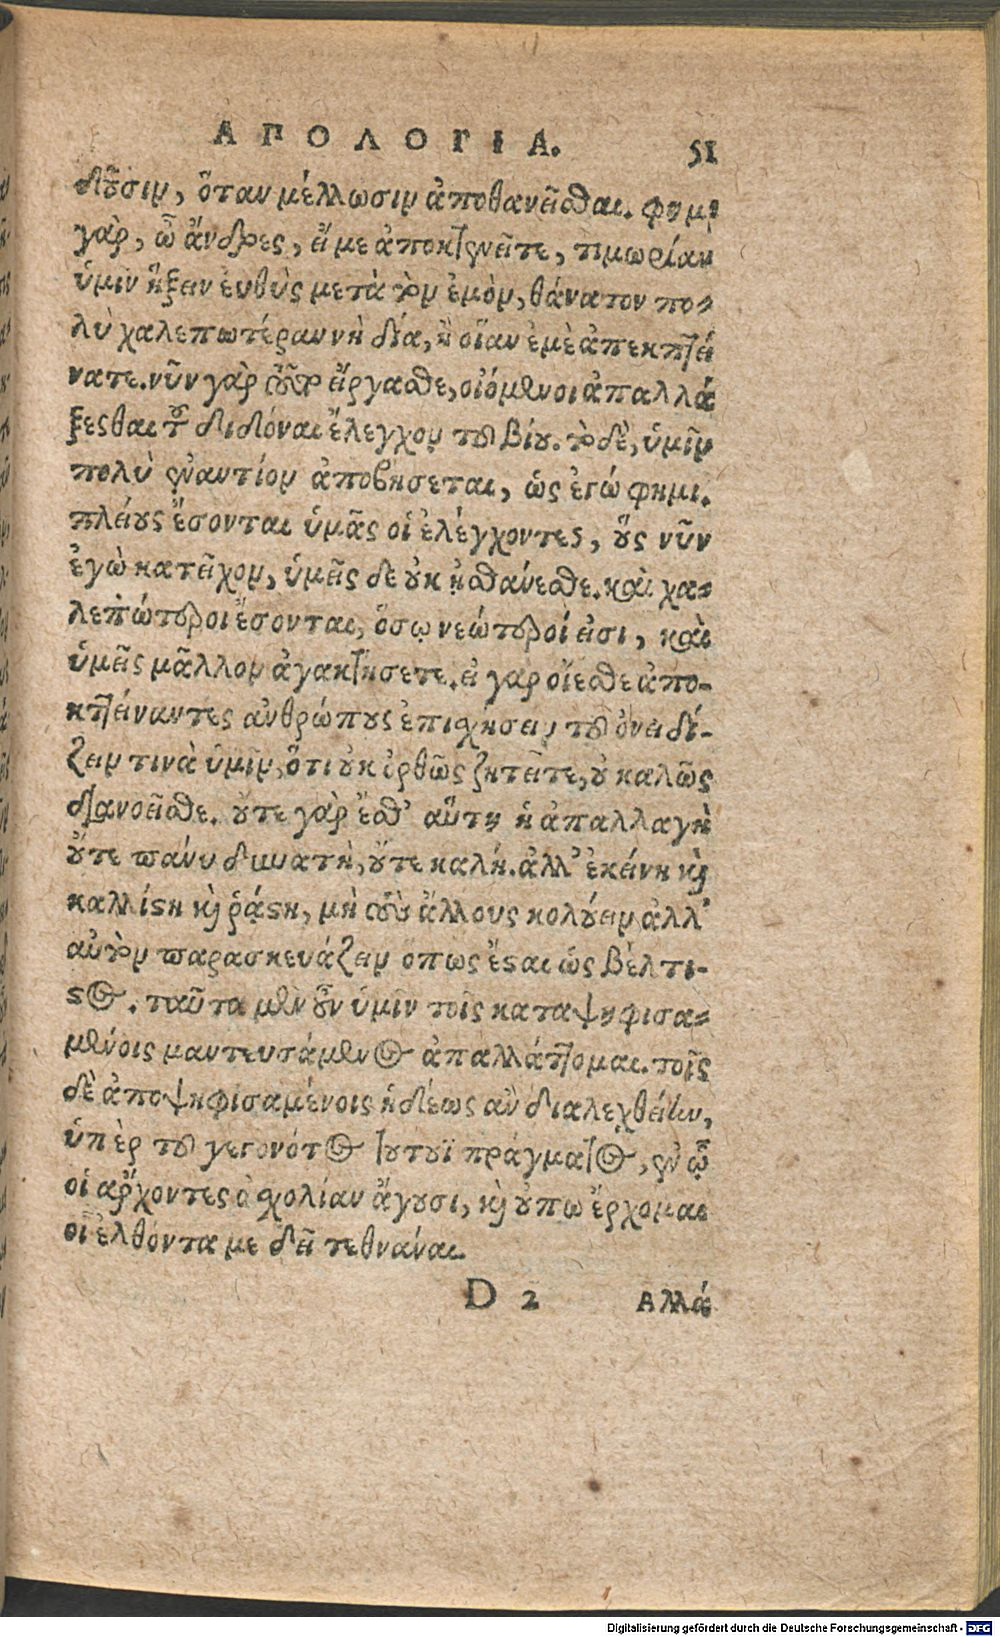 ΑΠΟΛΟΓΙΑ. 51
δοῦσιν, ὅταν μέλλωσιν ἀποθανεῖσθαι. φημὶ
γὰρ, ὦ ἄνδρες, εἴ με ἀποκτενεῖτε, τιμωρίαν
ὑμῖν ἥξειν εὐθὺς μετὰ τὸν ἐμὸν, θάνατον πο-
λὺ χαλεπωτέραν νὴ δία, ἢ οἵαν ἐμὲ ἀπεκτεί
νατε. νῦν γὰρ τοῦτο εἴργασθε, οἰόμενοι ἀπαλλά
ξεσθαι τοῦ διδόναι ἔλεγχον τοῦ βίου. τὸ δὲ, ὑμῖν
πολὺ ἐναντίον ἀποβήσεται, ὡς ἐγώ φημι.
πλείους ἔσονται ὑμᾶς οἱ ἐλέγχοντες, οὓς νῦν
ἐγὼ κατεῖχον, ὑμεῖς δε οὐκ ᾐσθάνεσθε. καὶ χα-
λεπώτεροι ἔσονται, ὅσῳ νεώτεροί εἰσι, καὶ
ὑμεῖς μᾶλλον ἀγακτήσετε. εἰ γαρ οἴεσθε ἀπο-
κτείναντες ἀνθρώπους ἐπισχήσειν τοῦ ὀνειδί-
ζειν τινὰ ὑμῖν, ὅτι οὐκ ὀρθῶς ζητεῖτε, οὐ καλῶς
διανοεῖσθε. οὔτε γὰρ ἔσθ' αὕτη ἡ ἀπαλλαγὴ
οὔτε πάνυ δυνατὴ, οὔτε καλή. ἀλλ' ἐκείνη καὶ
καλλίστη καὶ ῥᾴστη, μὴ τοὺς ἄλλους κολούειν ἀλλ'
αὑτὸν παρασκευάζειν ὅπως ἔσται ὡς βέλτι-
στος. ταῦτα μὲν οὖν ὑμῖν τοῖς καταψηφισα-
μένοις μαντευσάμενος ἀπαλλάττομαι. τοῖς
δὲ ἀποψηφισαμένοις ἡδέως ἂν διαλεχθείην,
ὑπὲρ τοῦ γεγονότος τουτουῒ πράγματος, ἐν ᾧ
οἱ ἄρχοντες ἀσχολίαν ἄγουσι, καὶ οὔπω ἔρχομαι
οἷ ἐλθόντα με δεῖ τεθνάναι.
D 2 Αλλά
Digitalisierung gefördert durch die Deutsche Forschungsgemeinschaft - DFG